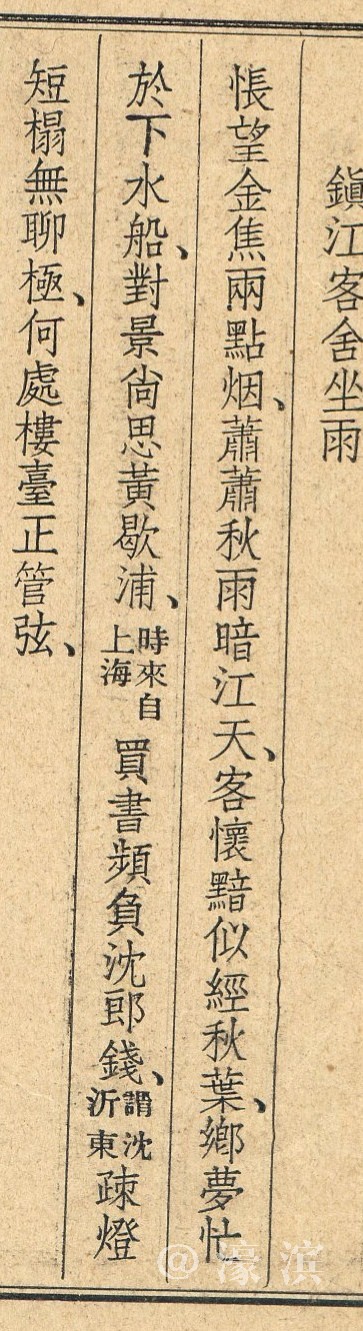 鎮江客舍坐雨
悵望金焦兩點烟、蕭蕭秋雨暗江天、客懷黯似經秋葉、鄉夢忙
於下水船、對景尙思黃歇浦、時來自上海買書頻負沈郎錢、謂沈沂東疎燈
短榻無聊極、何處樓臺正管弦、
@濠滨